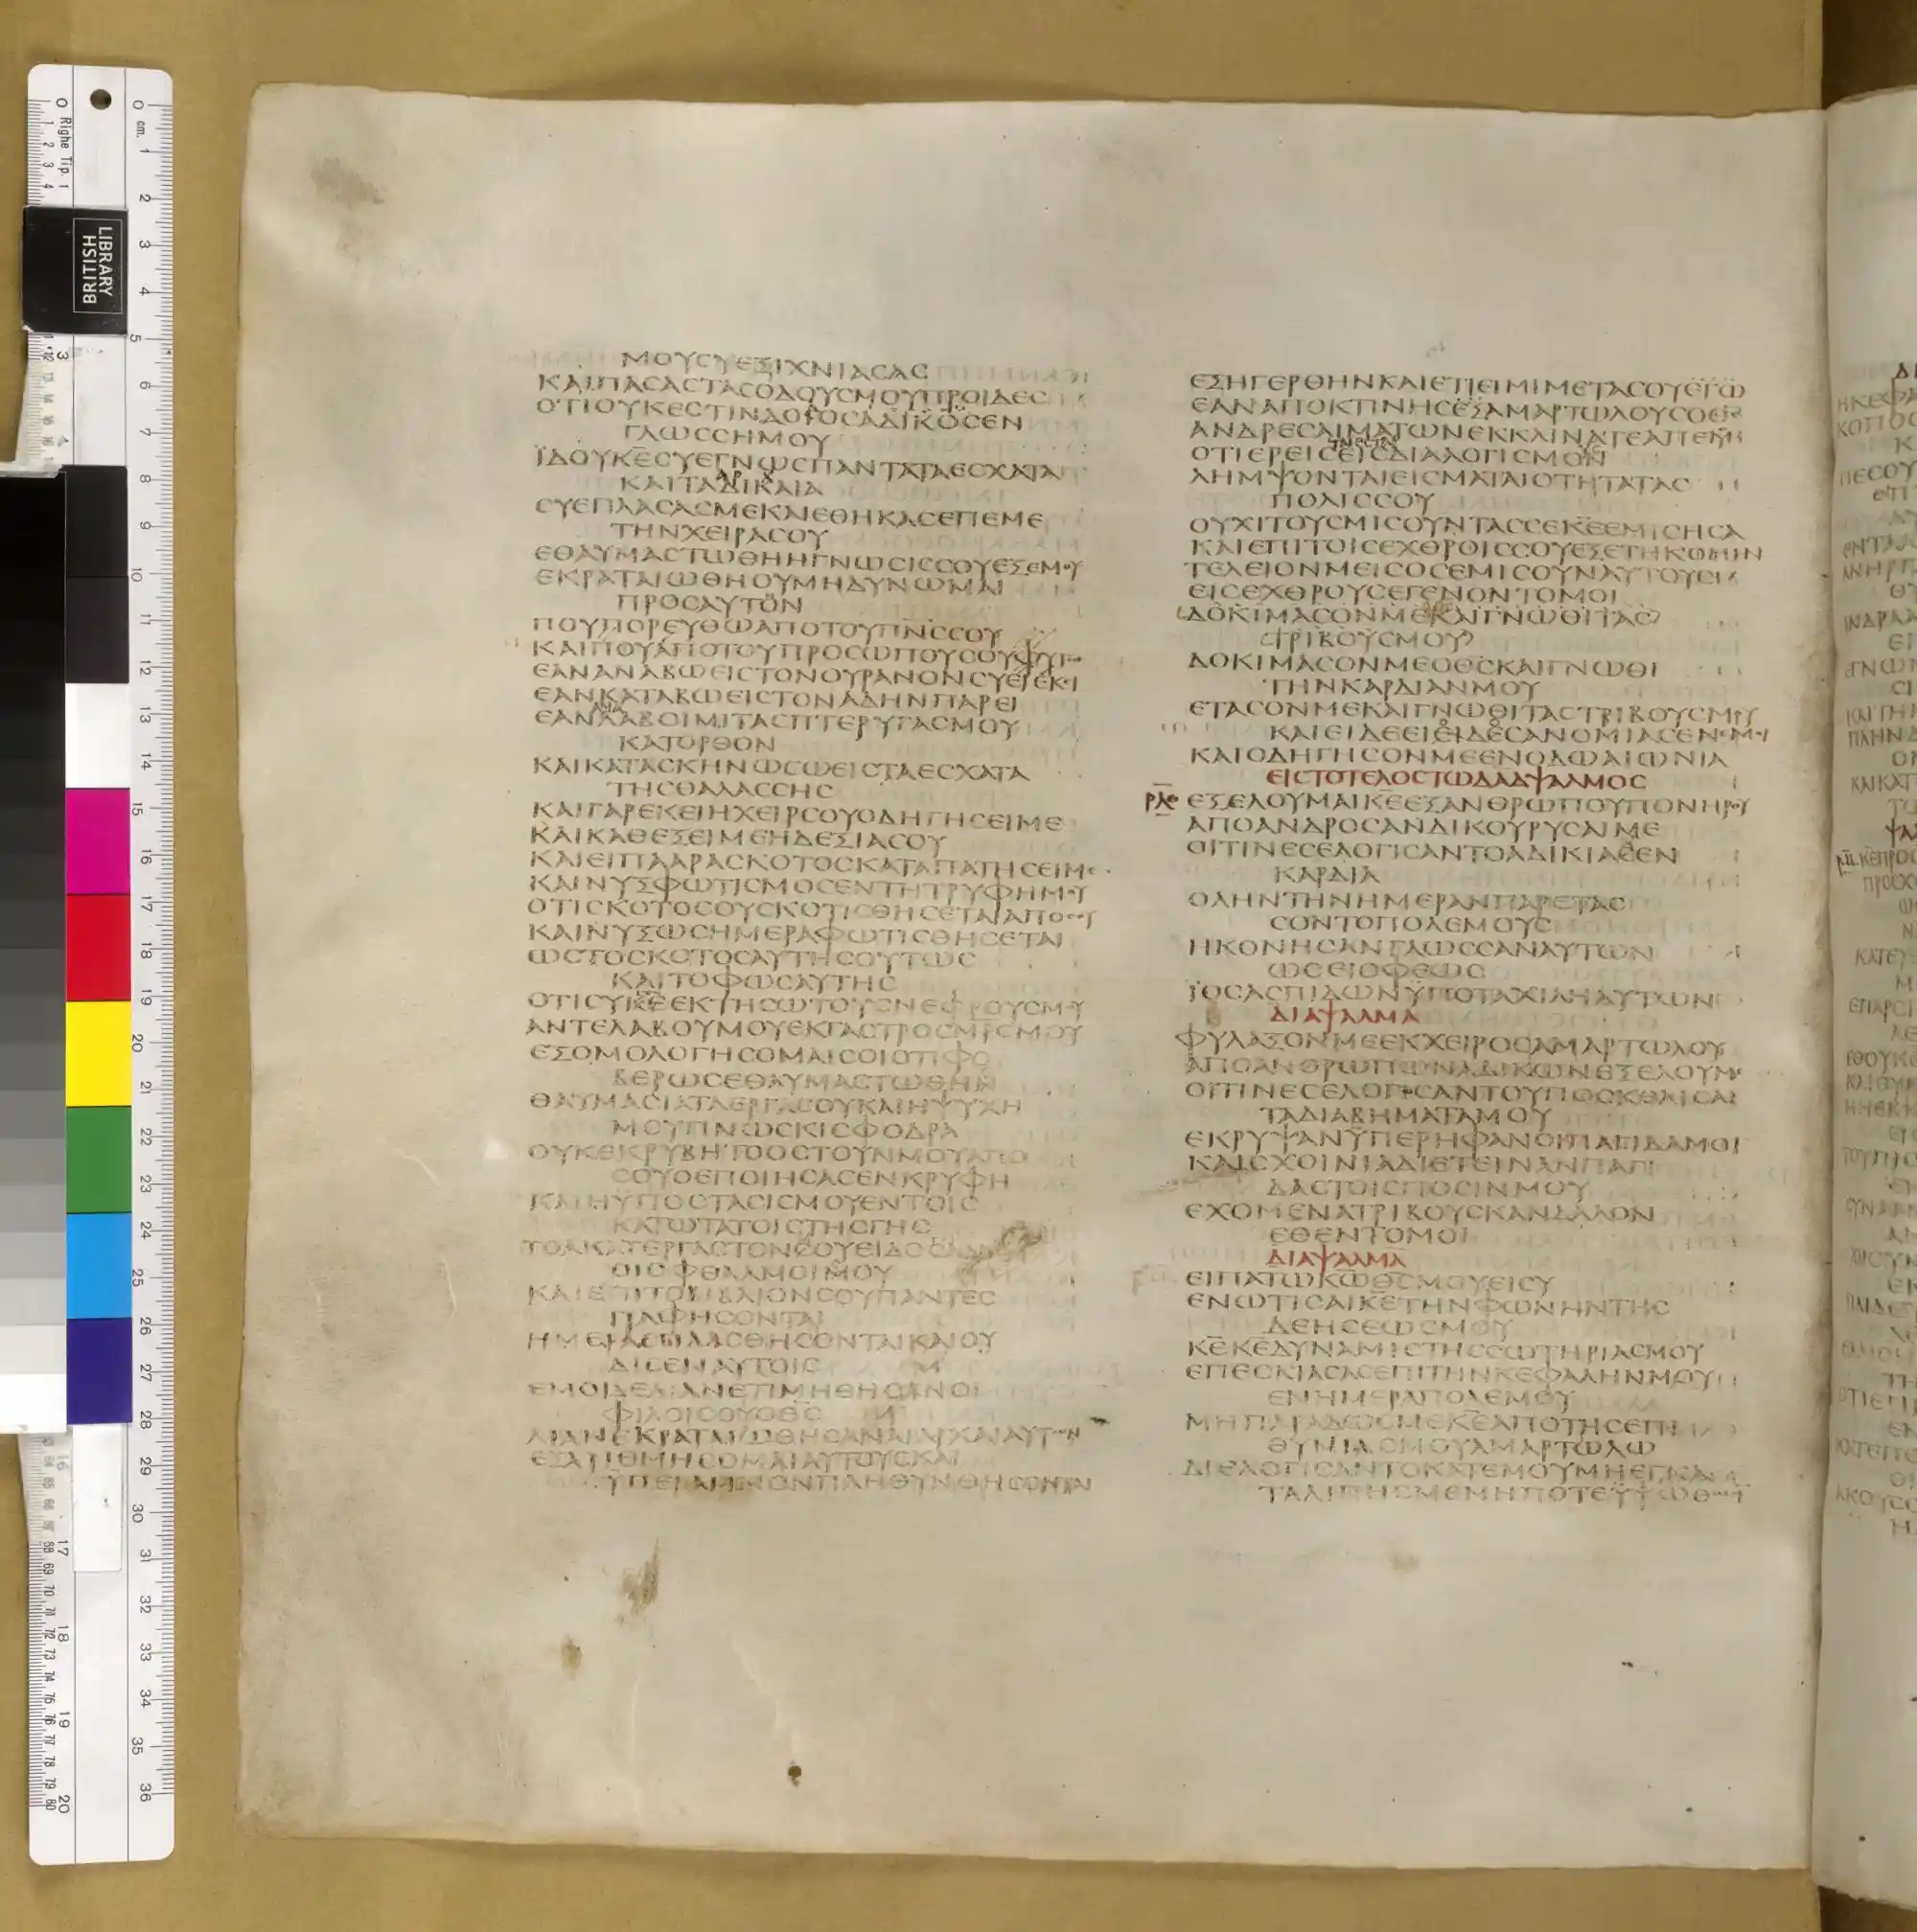 ΜΟΥΣΥΕΞΙΧΝΙΑΣΑΣ
ΚΑΙΠΑΣΑΣΤΑΣΟΔΟΥΣΜΟΥΠΡΟΙΔΕΣ
ΟΤΙΟΥΚΕΣΤΙΝΔΟΛΟΣΑΔΙΚΟΣΕΝ
ΓΛΩΣΣΗΜΟΥ
ΪΔΟΥΚΕΣΥΕΓΝΩΣΠΑΝΤΑΤΑΕΣΧΑΤΑ
ΚΑΙΤΑΔΙΚΑΙΑ
ΣΥΕΠΛΑΣΑΣΜΕΚΑΙΕΘΗΚΑΣΕΠΕΜΕ
ΤΗΝΧΕΙΡΑΣΟΥ
ΕΘΑΥΜΑΣΤΩΘΗΗΓΝΩΣΙΣΣΟΥΕΞΕΜΟΥ
ΕΚΡΑΤΑΙΩΘΗΟΥΜΗΔΥΝΩΜΑΙ
ΠΡΟΣΑΥΤΟΝ
ΠΟΥΠΟΡΕΥΘΩΑΠΟΤΟΥΠΝΣΣΟΥ
ΚΑΙΠΟΥΑΠΟΤΟΥΠΡΟΣΩΠΟΥΣΟΥΦΥΓΩ
ΕΑΝΑΝΑΒΩΕΙΣΤΟΝΟΥΡΑΝΟΝΣΥΕΙΕΚΙ
ΕΑΝΚΑΤΑΒΩΕΙΣΤΟΝΑΔΗΝΠΑΡΕΙ
ΕΑΝΛΑΒΟΙΜΙΤΑΣΠΤΕΡΥΓΑΣΜΟΥ
ΚΑΤΟΡΘΟΝ
ΚΑΙΚΑΤΑΣΚΗΝΩΣΩΕΙΣΤΑΕΣΧΑΤΑ
ΤΗΣΘΑΛΑΣΣΗΣ
ΚΑΙΓΑΡΕΚΕΙΗΧΕΙΡΣΟΥΟΔΗΓΗΣΕΙΜΕ
ΚΑΙΚΑΘΕΞΕΙΜΕΗΔΕΞΙΑΣΟΥ
ΚΑΙΕΙΠΑΑΡΑΣΚΟΤΟΣΚΑΤΑΠΑΤΗΣΕΙΜΕ
ΚΑΙΝΥΞΦΩΤΙΣΜΟΣΕΝΤΗΤΡΥΦΗΜΟΥ
ΟΤΙΣΚΟΤΟΣΟΥΣΚΟΤΙΣΘΗΣΕΤΑΙΑΠΟΣΟΥ
ΚΑΙΝΥΞΩΣΗΜΕΡΑΦΩΤΙΣΘΗΣΕΤΑΙ
ΩΣΤΟΣΚΟΤΟΣΑΥΤΗΣΟΥΤΩΣ
ΚΑΙΤΟΦΩΣΑΥΤΗΣ
ΟΤΙΣΥΚΕΕΚΤΗΣΩΤΟΥΣΝΕΦΡΟΥΣΜΟΥ
ΑΝΤΕΛΑΒΟΥΜΟΥΕΚΓΑΣΤΡΟΣΜΡΣΜΟΥ
ΕΞΟΜΟΛΟΓΗΣΟΜΑΙΣΟΙΟΤΙΦΟ
ΒΕΡΩΣΕΘΑΥΜΑΣΤΩΘΗΝ
ΘΑΥΜΑΣΙΑΤΑΕΡΓΑΣΟΥΚΑΙΗΨΥΧΗ
ΜΟΥΓΙΝΩΣΚΙΣΦΟΔΡΑ
ΟΥΚΕΚΡΥΒΗΤΟΟΣΤΟΥΝΜΟΥΑΠΟ
ΣΟΥΟΕΠΟΙΗΣΑΣΕΝΚΡΥΦΗ
ΚΑΙΗΥΠΟΣΤΑΣΙΣΜΟΥΕΝΤΟΙΣ
ΚΑΤΩΤΑΤΟΙΣΤΗΣΓΗΣ
ΟΙΟΦΘΑΛΜΟΙΜΟΥ
ΚΑΙΕΠΙΤΟΒΙΒΛΙΟΝΣΟΥΠΑΝΤΕΣ
ΓΡΑΦΗΣΟΝΤΑΙ
ΗΜΕΡΑΣΠΛΑΣΘΗΣΟΝΤΑΙΚΑΙΟΥ
ΔΙΣΕΝΑΥΤΟΙΣ
ΕΜΟΙΔΕΛΙΑΝΕΤΙΜΗΘΗΣΑΝΟΙ
ΦΙΛΟΙΣΟΥΟΘΣ
ΛΙΑΝΕΚΡΑΤΑΙΩΘΗΣΑΝΑΙΑΡΧΑΙΑΥΤΩΝ
ΕΞΑΡΙΘΜΗΣΟΜΑΙΑΥΤΟΥΣΚΑΙ
ΥΠΕΡΑΜΜΟΝΠΛΗΘΥΝΘΗΣΟΝΤΑΙ
ΕΞΗΓΕΡΘΗΝΚΑΙΕΤΙΕΙΜΙΜΕΤΑΣΟΥ
ΕΑΝΑΠΟΚΤΙΝΗΣΕΞΑΜΑΡΤΩΛΟΥΣΟΘΣ
ΑΝΔΡΕΣΑΙΜΑΤΩΝΕΚΚΛΙΝΑΤΕΑΠΕΜΟΥ
ΟΤΙΕΡΕΙΣΕΙΣΔΙΑΛΟΓΙΣΜΟΝ
ΛΗΜΨΟΝΤΑΙΕΙΣΜΑΤΑΙΟΤΗΤΑΤΑΣ
ΠΟΛΙΣΣΟΥ
ΟΥΧΙΤΟΥΣΜΙΣΟΥΝΤΑΣΣΕΚΕΕΜΙΣΗΣΑ
ΚΑΙΕΠΙΤΟΙΣΕΧΘΡΟΙΣΣΟΥΕΞΕΤΗΚΟΜΗΝ
ΤΕΛΕΙΟΝΜΕΙΣΟΣΕΜΙΣΟΥΝΑΥΤΟΥΣ
ΕΙΣΕΧΘΡΟΥΣΕΓΕΝΟΝΤΟΜΟΙ
ΔΟΚΙΜΑΣΟΝΜΕΚΑΙΓΝΩΘΙΤΑΣ
ΤΡΙΒΟΥΣΜΟΥ
ΔΟΚΙΜΑΣΟΝΜΕΟΘΣΚΑΙΓΝΩΘΙ
ΤΗΝΚΑΡΔΙΑΝΜΟΥ
ΕΤΑΣΟΝΜΕΚΑΙΓΝΩΘΙΤΑΣΤΡΙΒΟΥΣΜΟΥ
ΚΑΙΕΙΔΕΕΙΕΙΔΕΣΑΝΟΜΙΑΣΕΝΕΜΟΙ
ΚΑΙΟΔΗΓΗΣΟΝΜΕΕΝΟΔΩΑΙΩΝΙΑ
ΕΙΣΤΟΤΕΛΟΣΤΩΔΑΔΨΑΛΜΟΣ
ΡΛΘ ΕΞΕΛΟΥΜΑΙΚΕΕΞΑΝΘΡΩΠΟΥΠΟΝΗΡΟΥ
ΑΠΟΑΝΔΡΟΣΑΝΔΙΚΟΥΡΥΣΑΙΜΕ
ΟΙΤΙΝΕΣΕΛΟΓΙΣΑΝΤΟΑΔΙΚΙΑΣΕΝ
ΚΑΡΔΙΑ
ΟΛΗΝΤΗΝΗΜΕΡΑΝΠΑΡΕΤΑΣ
ΣΟΝΤΟΠΟΛΕΜΟΥΣ
ΗΚΟΝΗΣΑΝΓΛΩΣΣΑΝΑΥΤΩΝ
ΩΣΕΙΟΦΕΩΣ
ΪΟΣΑΣΠΙΔΩΝΫΠΟΤΑΧΙΛΗΑΥΤΩΝ
ΔΙΑΨΑΛΜΑ
ΦΥΛΑΞΟΝΜΕΕΚΧΕΙΡΟΣΑΜΑΡΤΩΛΟΥ
ΑΠΟΑΝΘΡΩΠΩΝΑΔΙΚΩΝΕΞΕΛΟΥΜΕ
ΟΙΤΙΝΕΣΕΛΟΓΙΣΑΝΤΟΥΠΟΣΚΕΛΙΣΑΙ
ΤΑΔΙΑΒΗΜΑΤΑΜΟΥ
ΕΚΡΥΨΑΝΫΠΕΡΗΦΑΝΟΙΠΑΓΙΔΑΜΟΙ
ΚΑΙΣΧΟΙΝΙΑΔΙΕΤΕΙΝΑΝΠΑΓΙ
ΔΑΣΤΟΙΣΠΟΣΙΝΜΟΥ
ΕΧΟΜΕΝΑΤΡΙΒΟΥΣΚΑΝΔΑΛΟΝ
ΕΘΕΝΤΟΜΟΙ
ΔΙΑΨΑΛΜΑ
ΕΙΠΑΤΩΚΩΘΣΜΟΥΕΙΣΥ
ΕΝΩΤΙΣΑΙΚΕΤΗΝΦΩΝΗΝΤΗΣ
ΔΕΗΣΕΩΣΜΟΥ
ΚΕΚΕΔΥΝΑΜΙΣΤΗΣΣΩΤΗΡΙΑΣΜΟΥ
ΕΠΕΣΚΙΑΣΑΣΕΠΙΤΗΝΚΕΦΑΛΗΝΜΟΥ
ΕΝΗΜΕΡΑΠΟΛΕΜΟΥ
ΜΗΠΑΡΑΔΩΣΜΕΚΕΑΠΟΤΗΣΕΠΙ
ΘΥΜΙΑΣΜΟΥΑΜΑΡΤΩΛΩ
ΔΙΕΛΟΓΙΣΑΝΤΟΚΑΤΕΜΟΥΜΗΕΓΚΑ
ΤΑΛΙΠΗΣΜΕΜΗΠΟΤΕΫΨΩΘΩΣΙ
BRITISH
LIBRARY